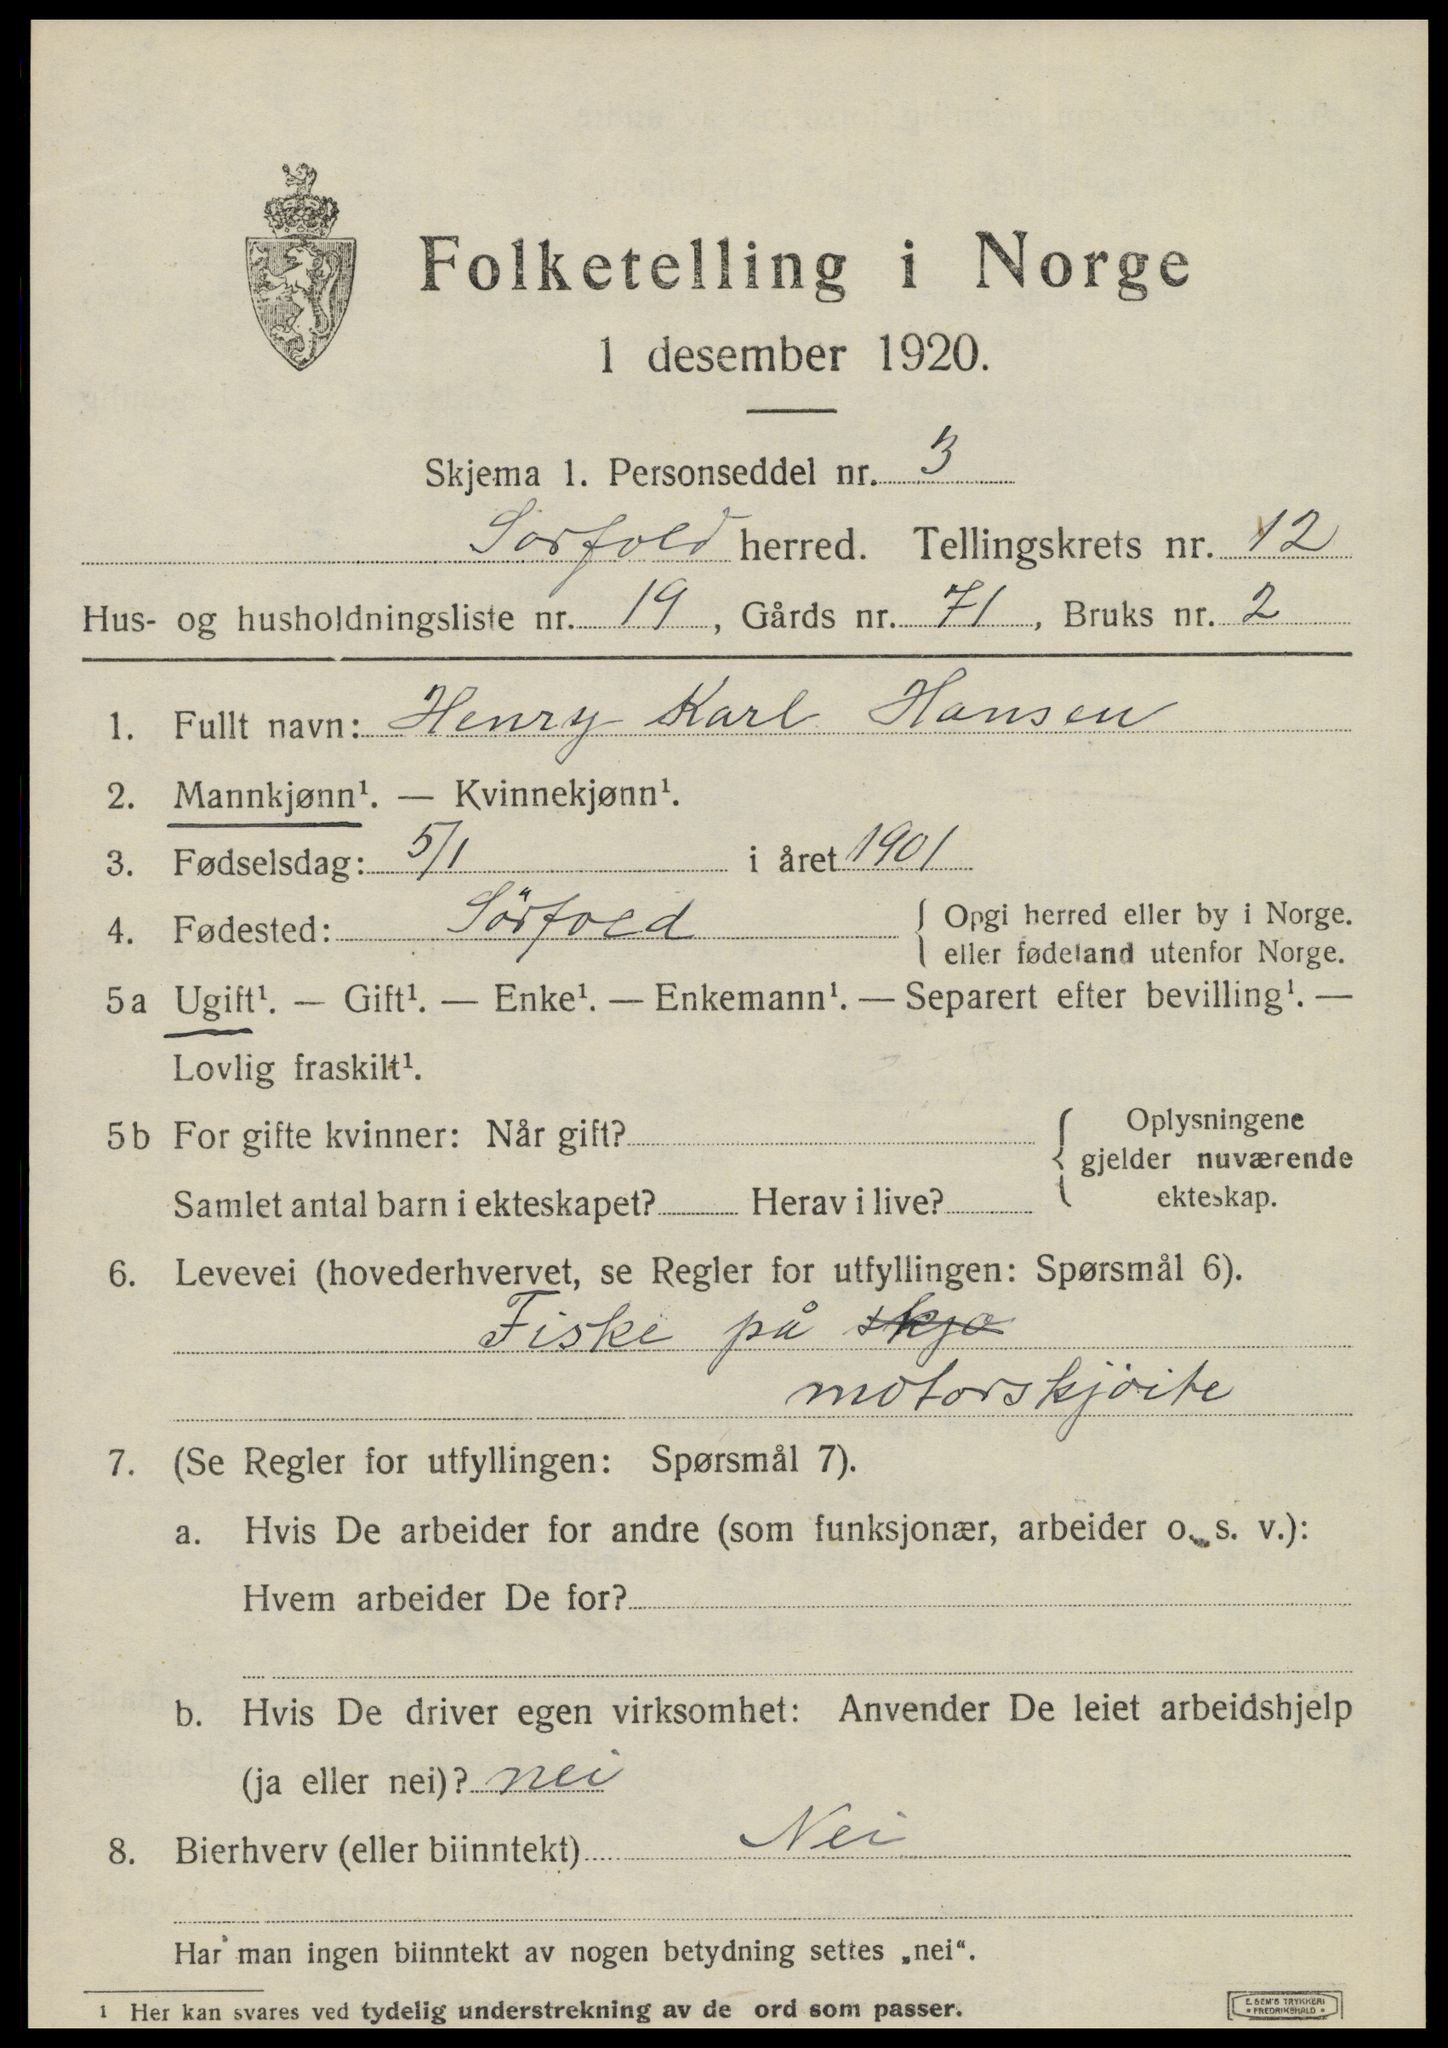 Folketelling i Norge
1 desember 1920.
Skjema 1. Personseddel nr. 3
Sørfold herred. Tellingskrets nr. 12
Hus- og husholdningsliste nr. 19, Gårds nr. 71, Bruks nr. 2
1. Fullt navn: Henry Karl Hansen
2. Mannkjønn¹. — Kvinnekjønn¹.
3. Fødselsdag: 5/1 i året 1901
4. Fødested: Sörfold { Opgi herred eller by i Norge.
eller fødeland utenfor Norge.
5a Ugift¹. — Gift¹. — Enke¹. — Enkemann¹. — Separert efter bevilling¹. —
Lovlig fraskilt¹.
5b For gifte kvinner: Når gift? { Oplysningene
gjelder nuværende
Samlet antal barn i ekteskapet? Herav i live? ekteskap.
6. Levevei (hovederhvervet, se Regler for utfyllingen: Spørsmål 6).
Fiske på skjø
motorskjöite
7. (Se Regler for utfyllingen: Spørsmål 7).
a. Hvis De arbeider for andre (som funksjonær, arbeider o. s. v.):
Hvem arbeider De for?
b. Hvis De driver egen virksomhet: Anvender De leiet arbeidshjelp
(ja eller nei)? nei
8. Bierhverv (eller biinntekt) Nei
Har man ingen biinntekt av nogen betydning settes „nei“.
¹ Her kan svares ved tydelig understrekning av de ord som passer.
E. SEM'S TRYKKERI
• FREDRIKSHALD •